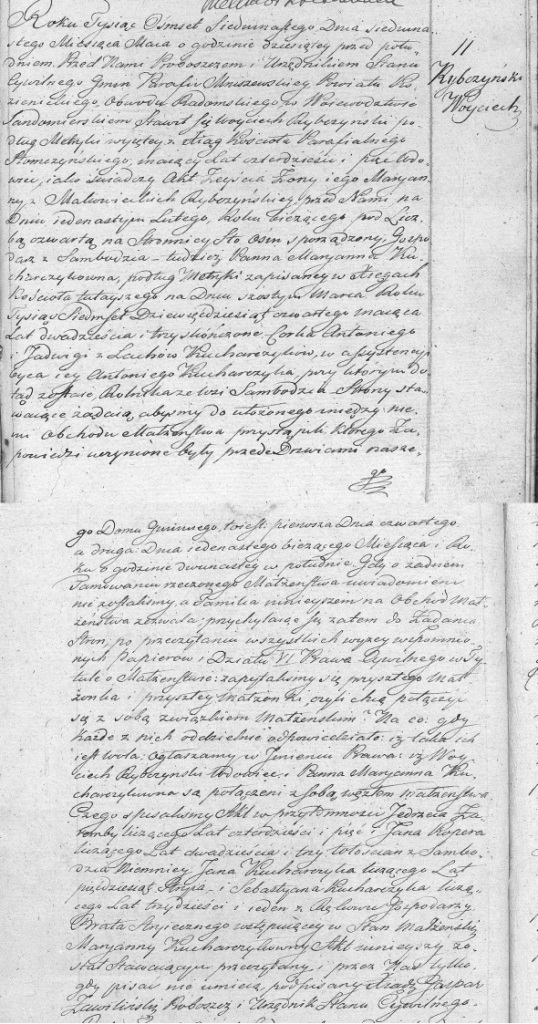 Roku Tysiąc Osmset Siedmnastego Dnia siedmna-
stego Miesiąca Marca o godzinie dziesiątey przed połu-
dniem. Przed Nami Proboszczem i Urzędnikiem Stanu
Cywilnego Gminy Parafii Powiatu Ko-
zienickiego, Obwodu Radomskiego w Woiewodztwie
Sandomierskiem Stawił się Woyciech Rybczyński po-
dług Metryki wyiętey z Xiąg Kościoła Parafialnego
maiący Lat czterdzieści i pięć Wdo-
wiec, iako świadczy Akt Zeyścia Żony iego Maryan-
ny z Rybczyńskiey przed Nami na
Dniu iedenastym Lutego, Roku bieżącego pod Licz-
bą czwartą na Stronnicy Sto Osm sporządzony, Gospo-
darz z Sambodzia – tudzież Panna Maryanna Ku-
charczykowna, podług Metryki zapisaney w Xięgach
Kościoła tutayszego na Dniu szóstym Marca, Roku
Tysiąc Siedmset Dziewięćdziesiąt czwartego maiąca
Lat dwadzieścia i trzy skończone Corka Antoniego
i Jadwigi z Lachów Kucharczyków, w assystencyi
Oyca iey Antoniego Kucharczyka, przy którym do-
tąd zostaie, Rolnika ze Wsi Sambodzia – Strony sta-
waiące żądaią, abyśmy do ułożonego między nie-
mi Obchodu Małżeństwa przystąpili. którego Za-
powiedzi uczynione były przede Drzwiami nasze-
11
Rybczyński
Woyciech
go Domu Gminnego, to iest: pierwsza Dnia czwartego
a druga: Dnia iedenastego bieżącego Miesiąca i Ro-
ku o godzinie dwunastey w południe. Gdy o żadnem
Tamowaniu rzeczonego Małżeństwa uwiadomieni
nie zostaliśmy, a Familia ninieyszem na Obchod Mał-
żeństwa zezwala; przychylaiąc się zatem do Żądania
Stron, po przeczytaniu wszystkich wyżey wspomnio-
nych Papierów i Działu VI Prawa Cywilnego w Ty-
tule o Małżeństwie: zapytaliśmy się przyszłego Mał-
żonka i przyszłey Małżonki, czyli chcą połączyć
się z sobą związkiem Małżeńskim? Na co: gdy
każde z nich oddzielnie odpowiedziało: iż taka ich
iest wola; ogłaszamy w Jmieniu Prawa: iż Woy-
ciech Rybczynski Wdowiec, i Panna Maryanna Ku-
charczykowna są połączeni z sobą węzłem Małżeństwa
Czego spisaliśmy Akt w przytomności Jędrzeia Za-
remby liczącego Lat czterdzieści i pięć i Jana Kopera
liczącego Lat dwadzieścia i trzy Włościan z Sambo-
dzia Niemniey Jana Kucharczyka liczącego Lat
pięćdziesiąt i Sebastyana Kucharczyka liczą-
cego Lat trzydzieści i ieden z Gospodarzy
Brata Stryiecznego wstępuiącey w Stan Małżeński
Maryanny Kucharczykowny Akt ninieyszy zo-
stał Stawaiącym przeczytany, i przez Nas tylko
gdy pisać nie umieią podpisany. Gaspar
Zawiliński Proboszcz i Urzędnik Stanu Cywilnego.